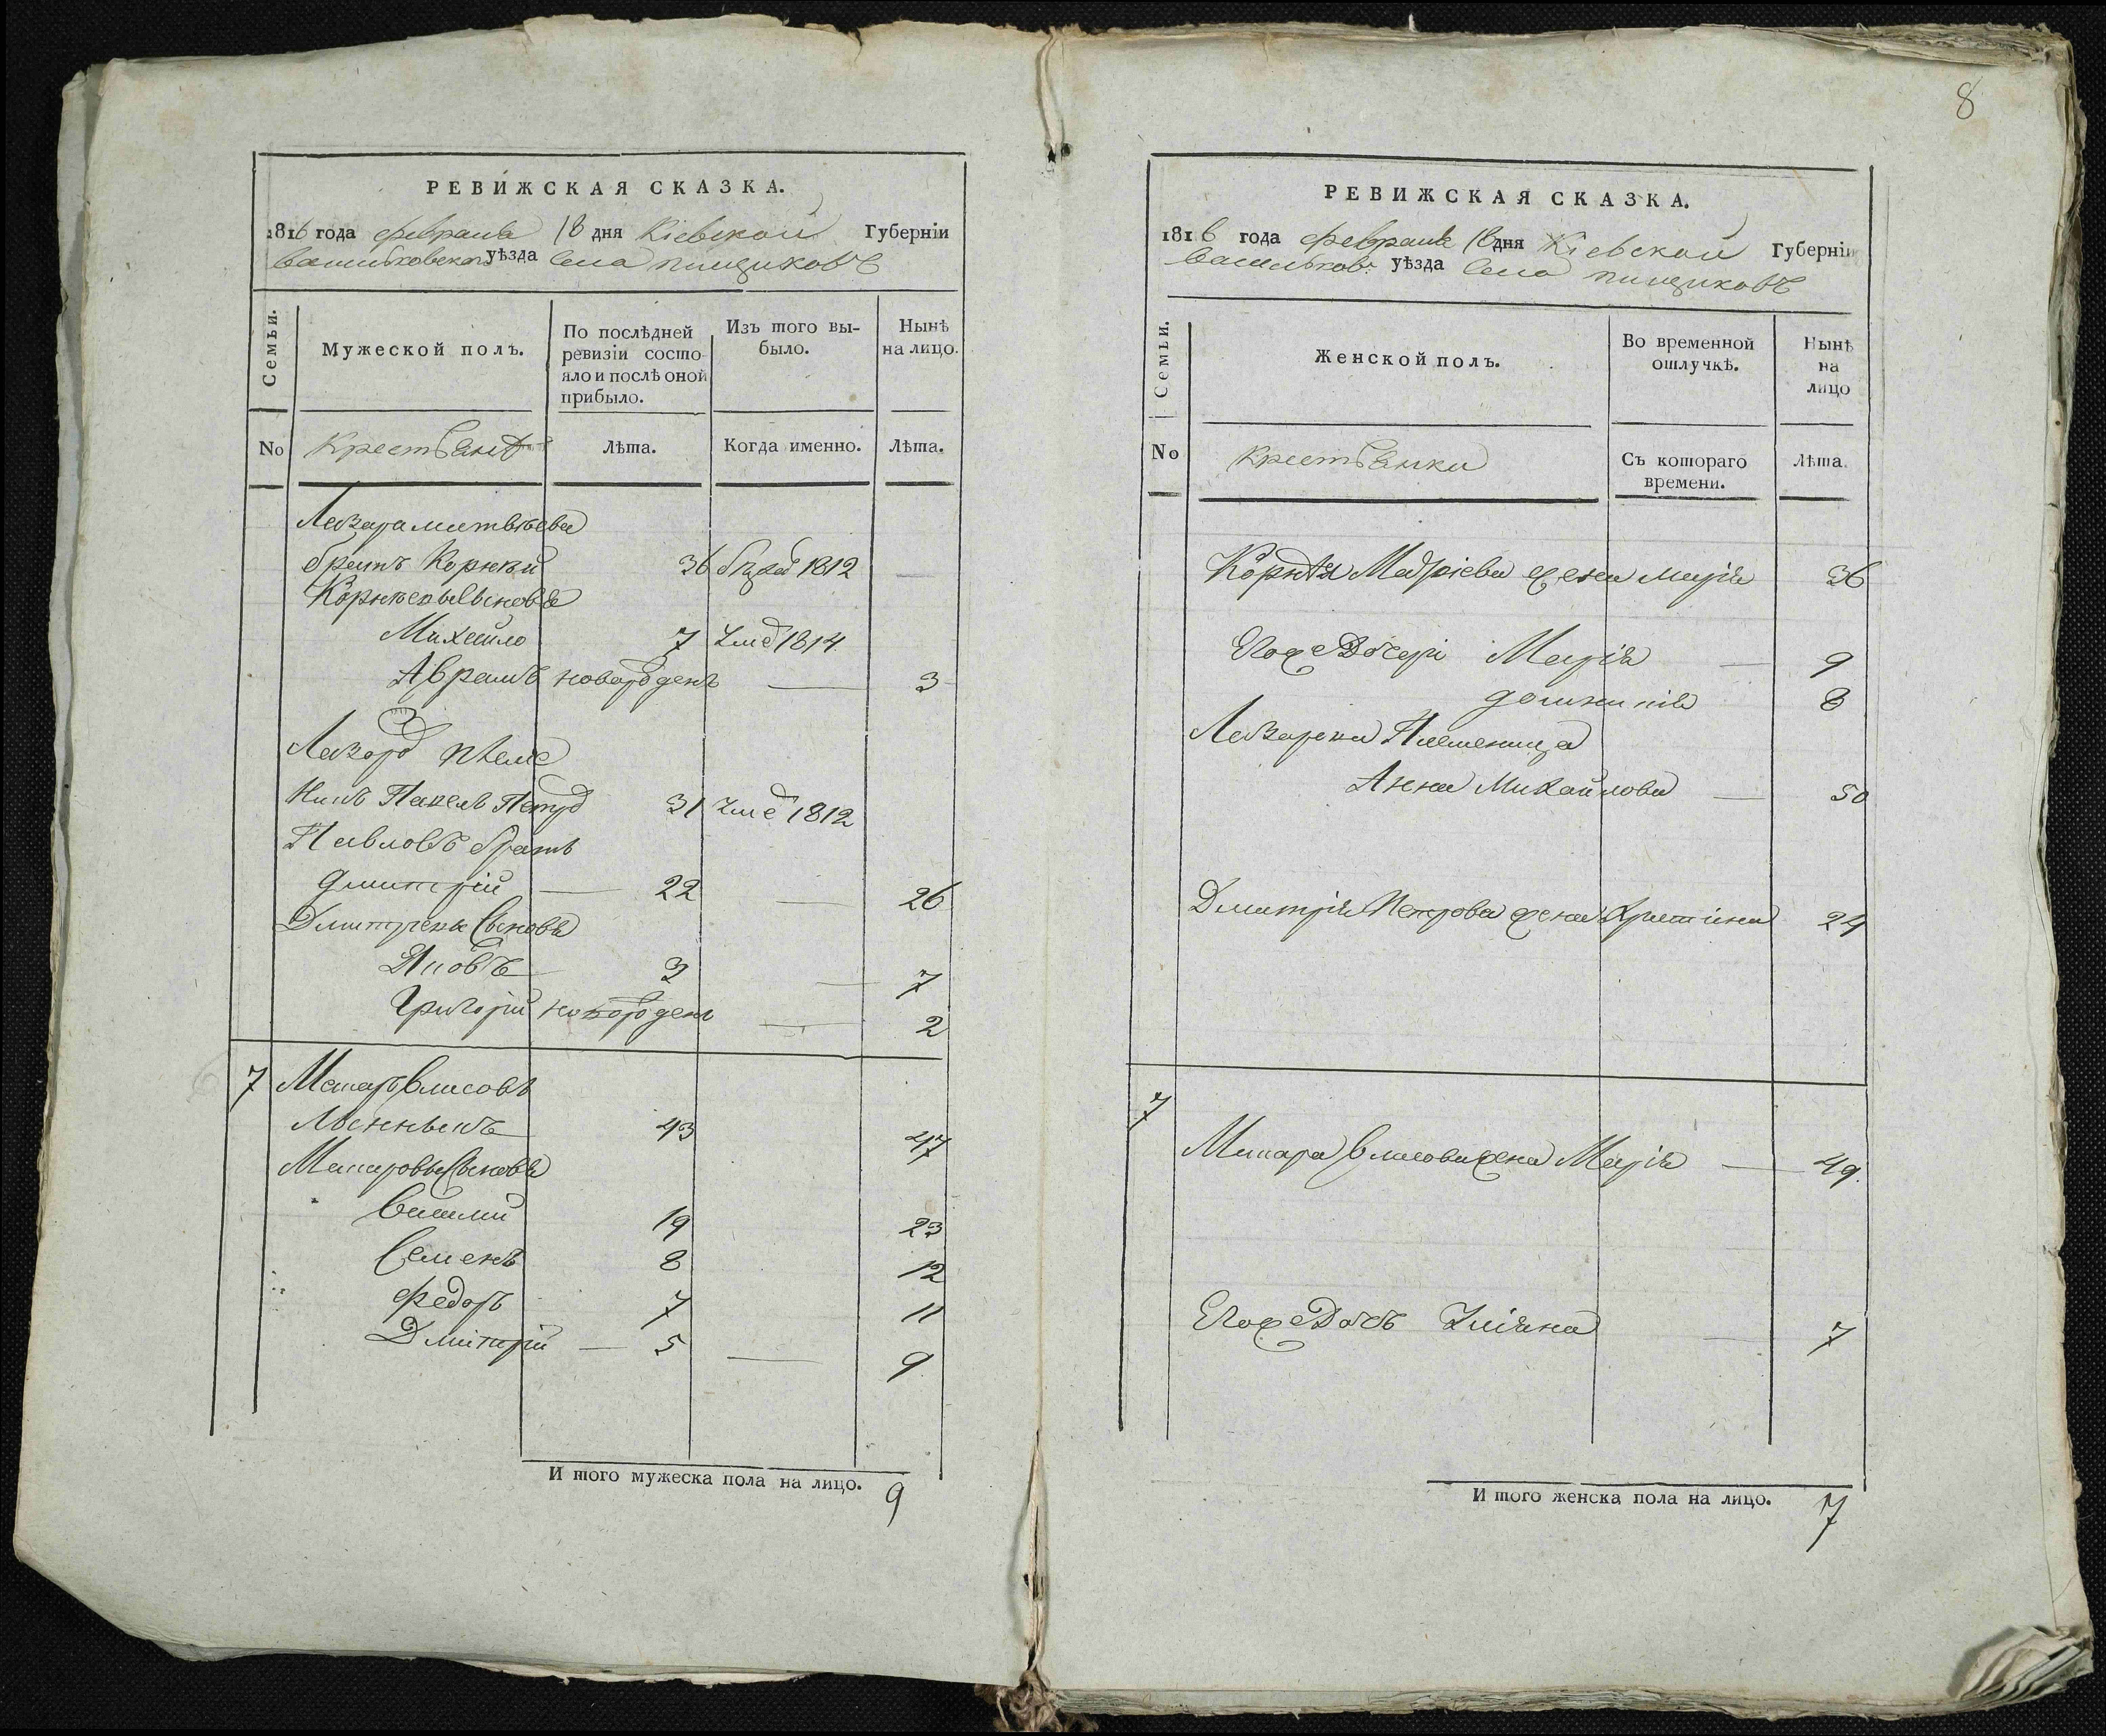 8
РЕВИЖСКАЯ СКАЗКА.
1816 года февраля 18 дня Кіевской Губерніи
Васильковского уѣзда Села пищиковъ
Семьи.
Мужеской полъ.
По послѣдней ревизіи состояло и послѣ оной прибыло.
Изъ того выбыло.
Нынѣ на лицо.
No
Крестьянъ
Лѣта.
Когда именно.
Лѣта.
Лазара матвѣева
братъ Корнѣй 36 1812
Корнѣевы Сыновя
Михайло 7 Умер 1814
Аврамъ новорожденъ 3
Лазара племе
никъ Павелъ Петро 31 Умер 1812
Павловъ братъ
Дмитрій 22 26
Дмитріевы Сыновя
Яковъ 3 7
Григорій новорожденъ 2
7 Макаръ Власовъ
43 47
Макаровы Сыновя
Василий 19 23
Семенъ 8 12
Федоръ 7 11
Дмитрій 5 9
И того мужеска пола на лицо. 9
РЕВИЖСКАЯ СКАЗКА.
1816 года февраля 18 дня Кіевской Губерніи
Васильков: уѣзда Села пищиковъ
Семьи.
Женской полъ.
Во временной отлучкѣ.
Нынѣ на лицо
No
Крестьянки
Съ котораго времени.
Лѣта.
Корнѣя жена Марія 36
Егоже Дочери Марія 9
8
Лазарева Племеница
Анна Михайлова 50
Дмитрія Петрова жена Христина 24
7
Макара Власова жена Марія 49
Егоже Дочь Уліяна 7
И того женска пола на лицо. 7